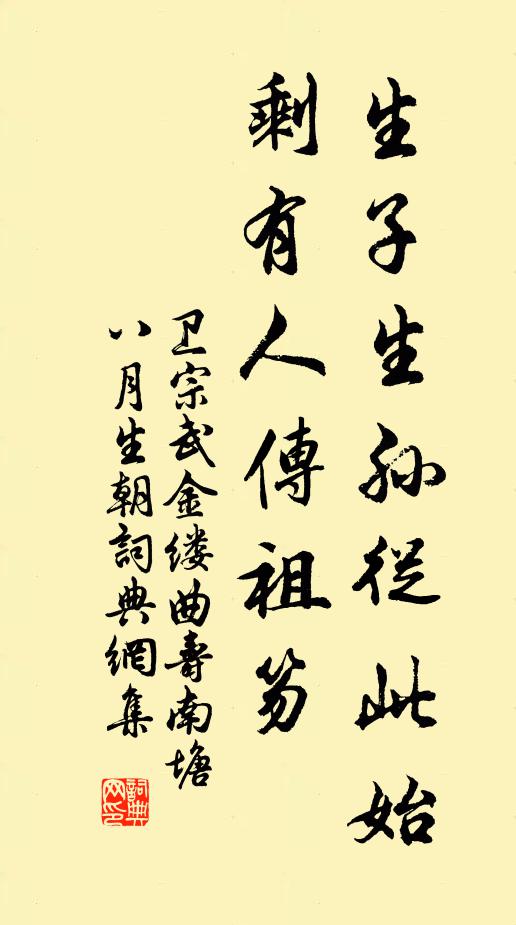 生子生孙從此始
剩有人傳祖笏
卫宗武金缕曲壽南塘
八月生朝詞典網集
詞典网印